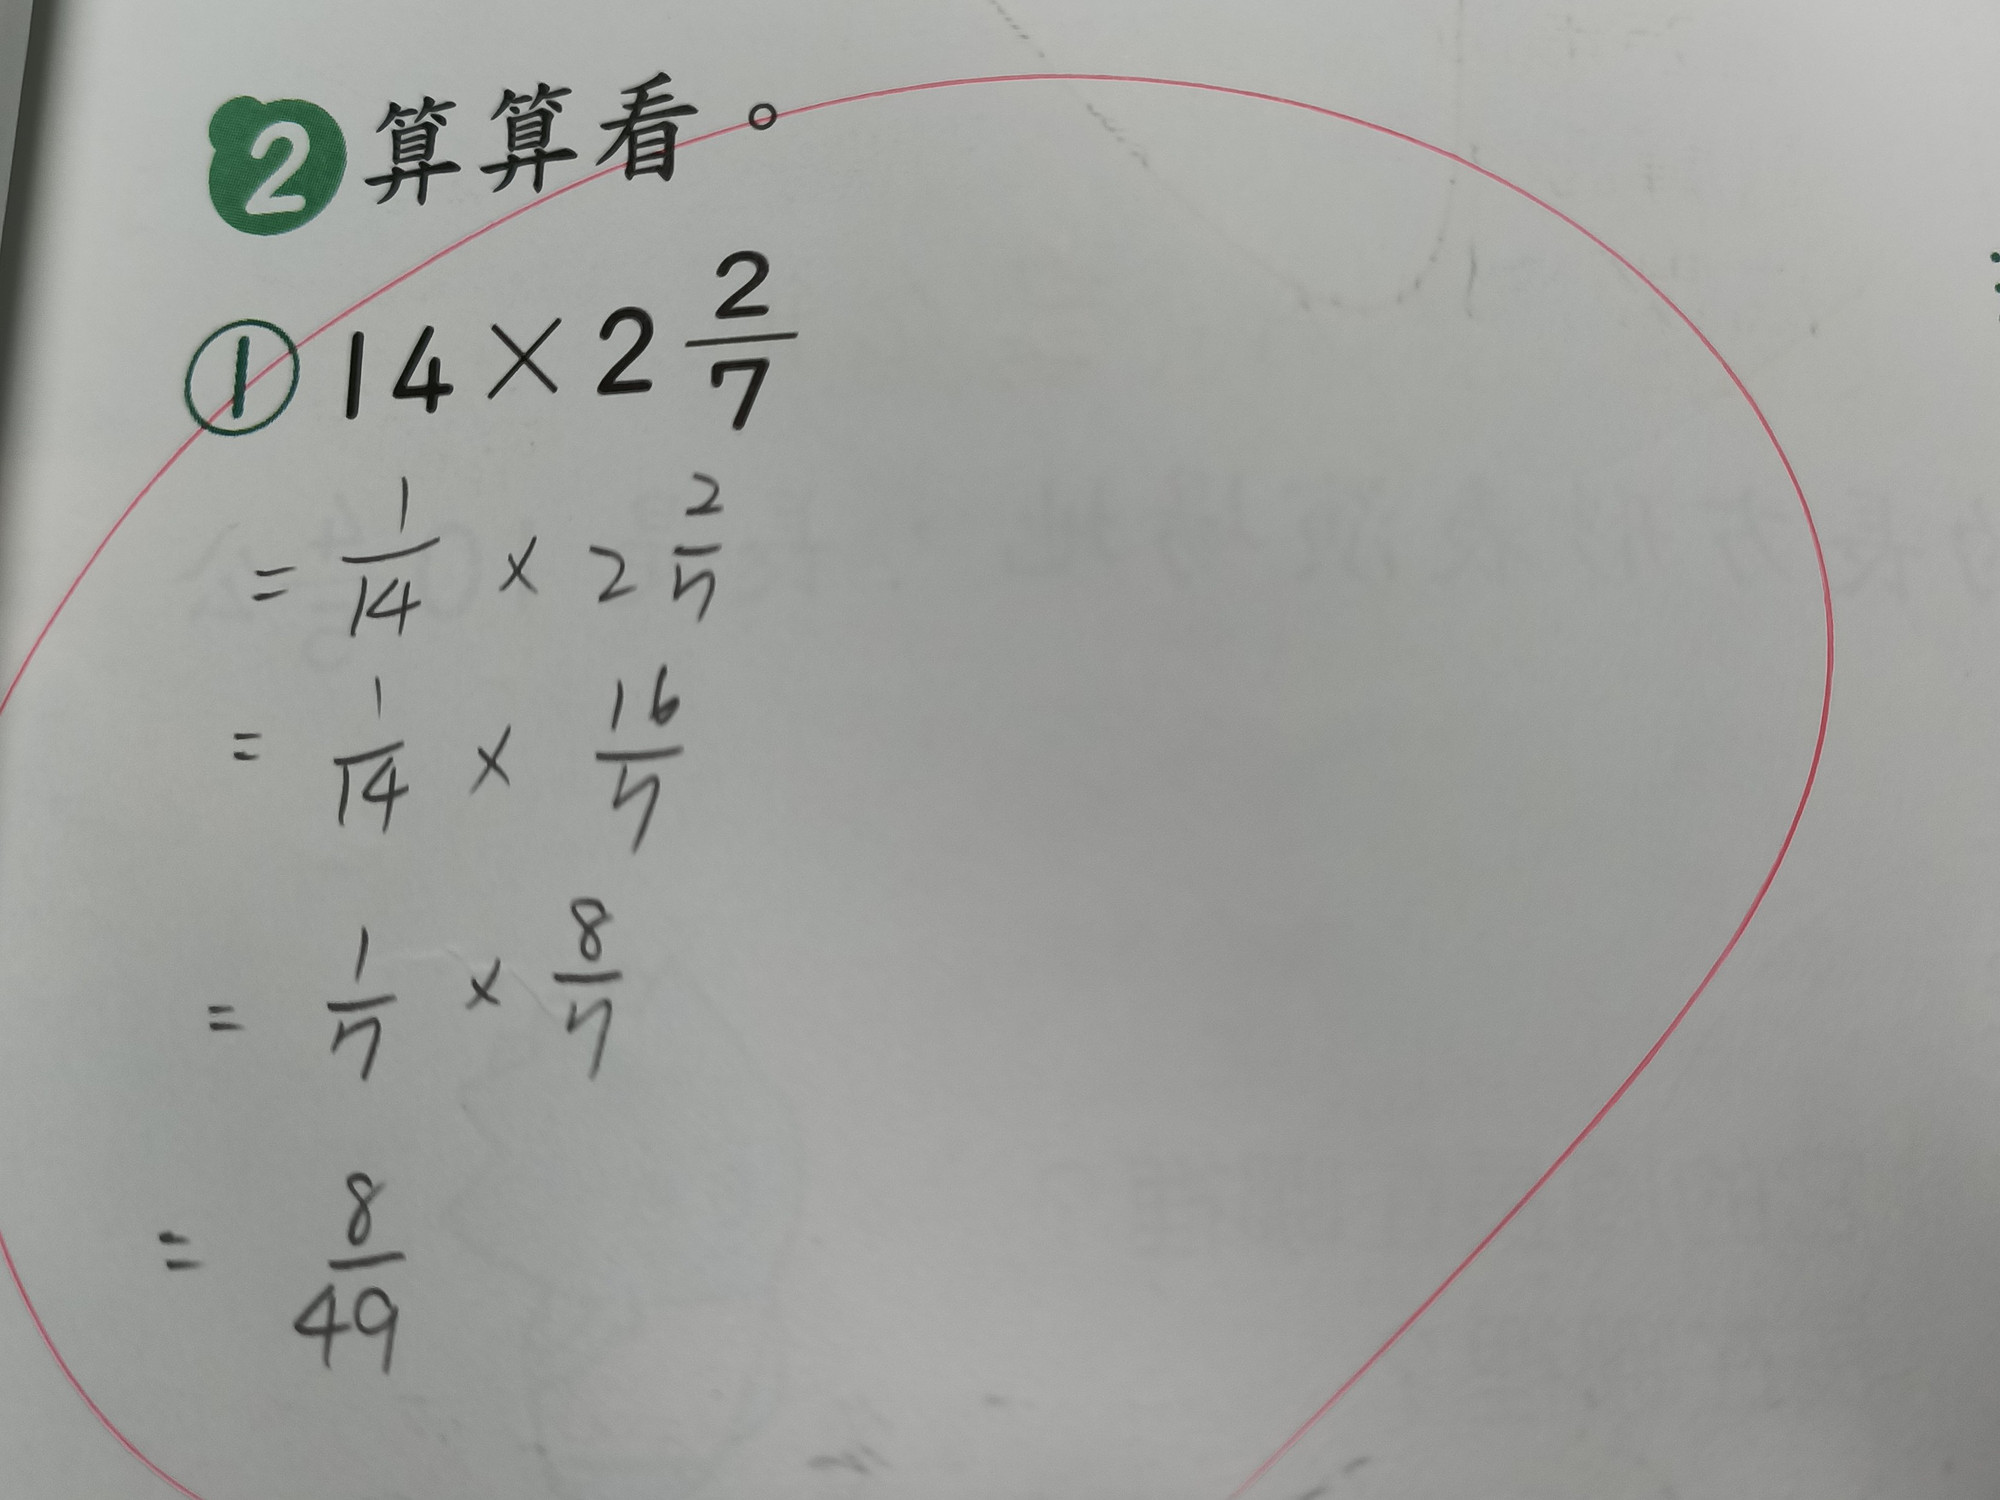 2 算算看。
① 14 × 2 2/7
= 1/14 × 2 2/7
= 1/14 × 16/7
= 1/7 × 8/7
= 8/49